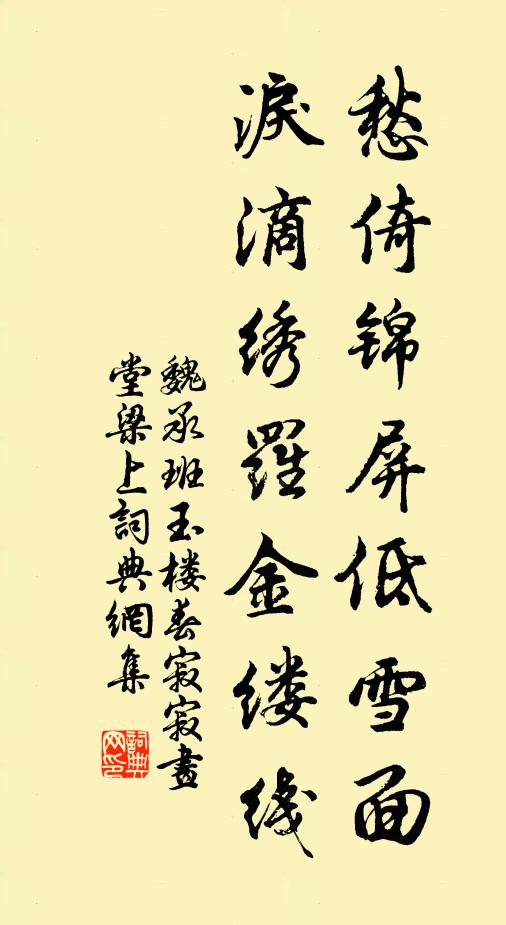 愁倚锦屏低雪面
淚滴绣羅金缕线
魏承班玉楼春寂寂畫
堂梁上詞典網集
詞典網印